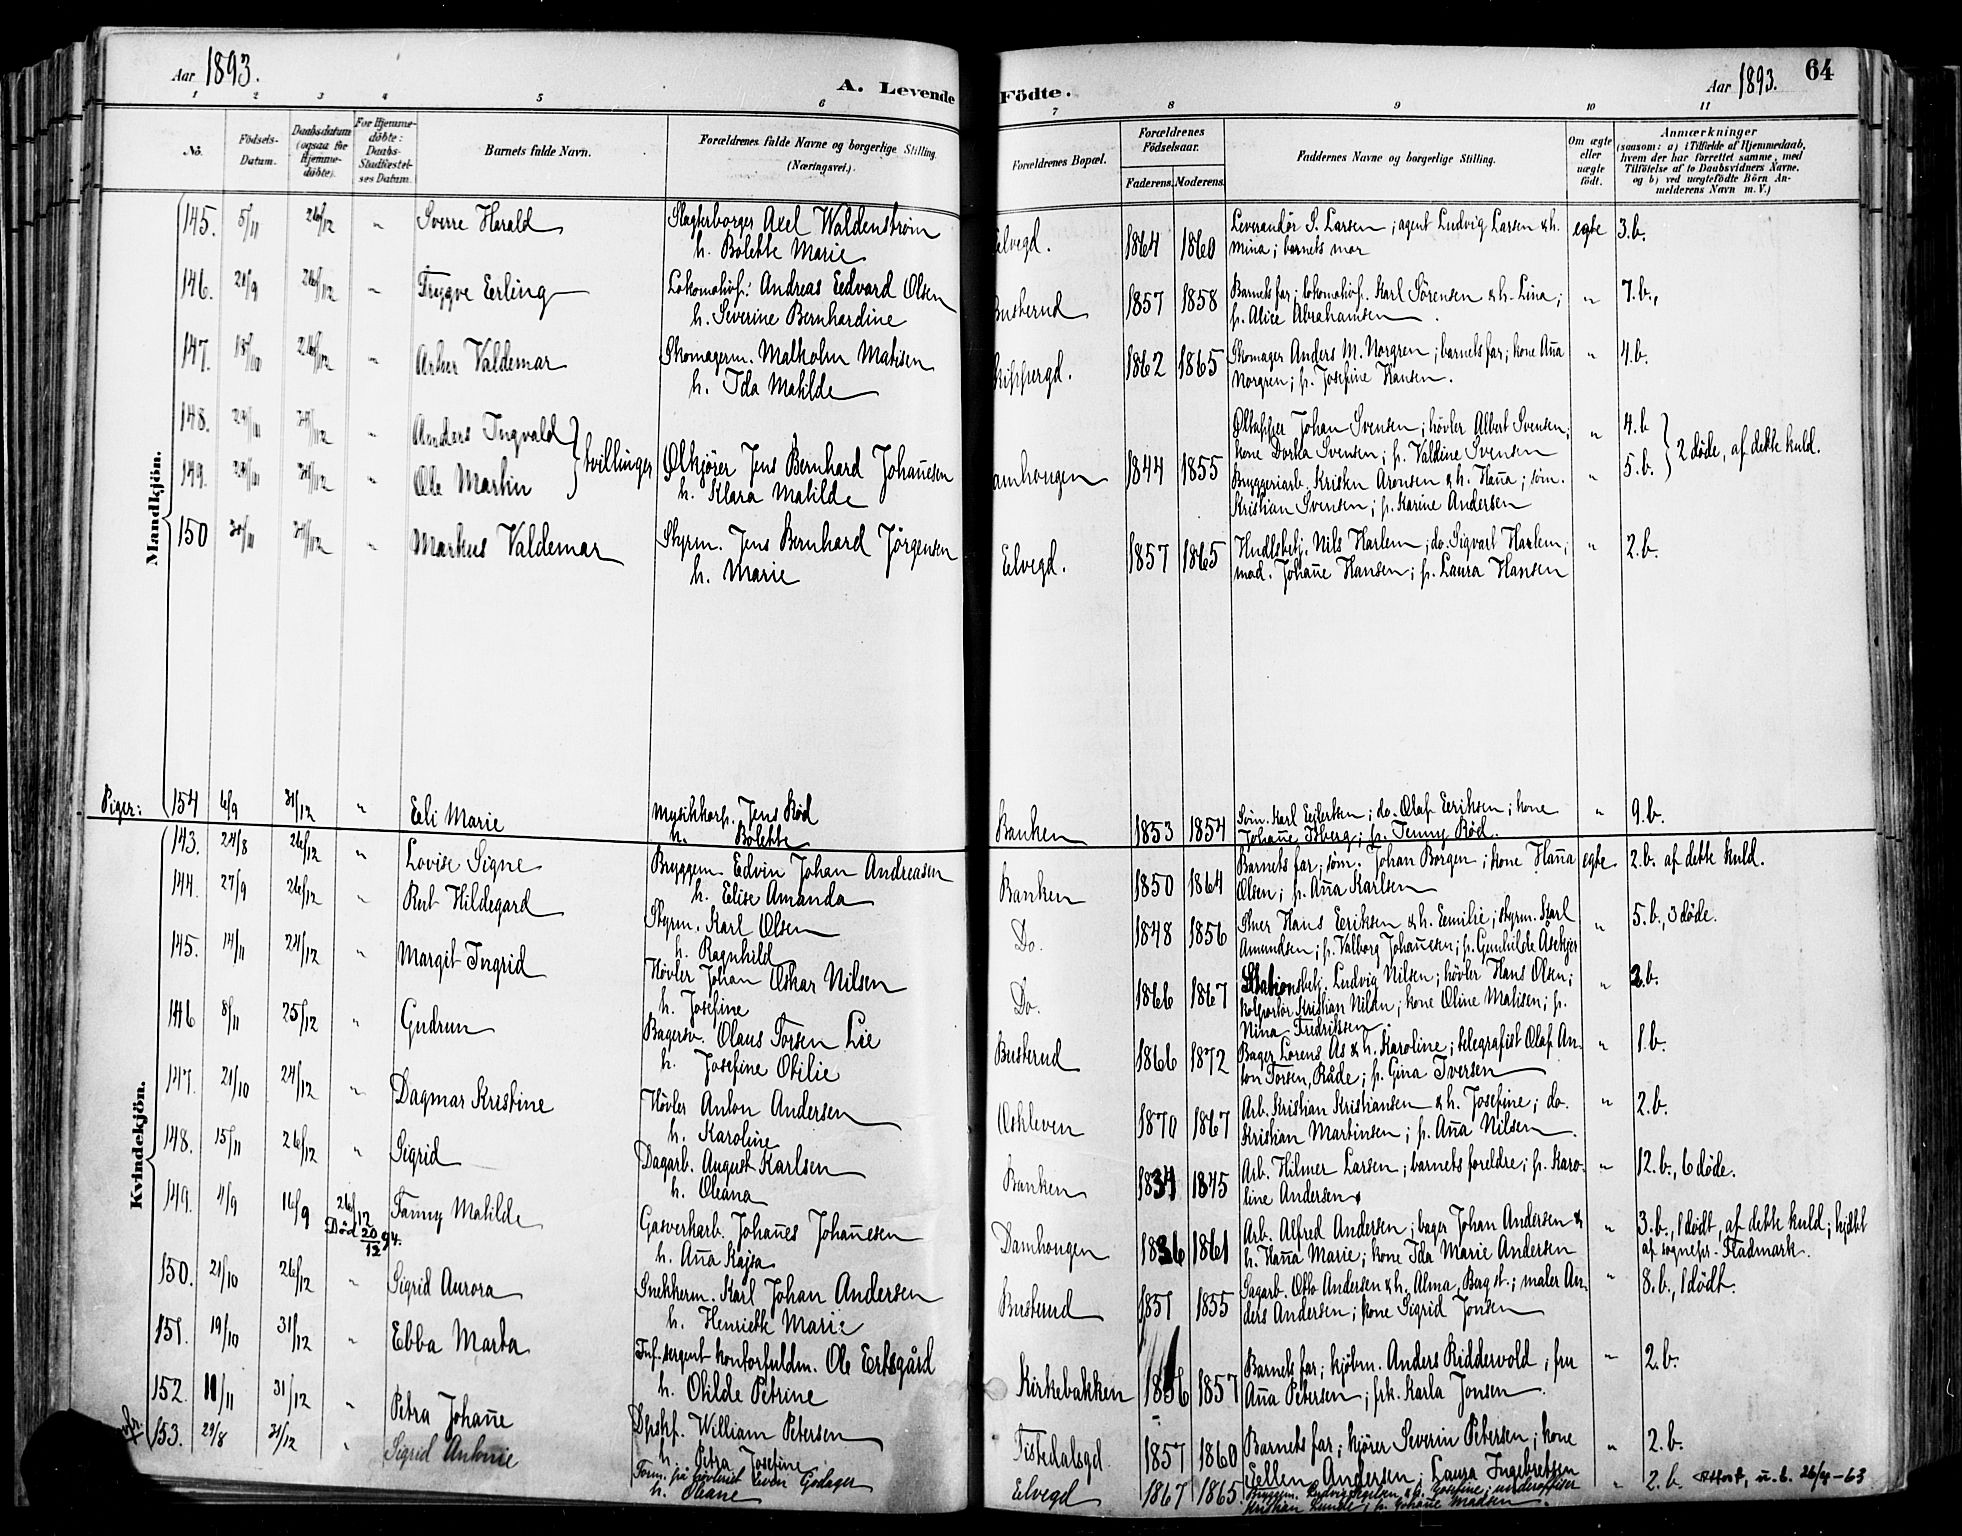 Aar 1893.
A. Levende Födte.
Aar 1893. 64
1 2 3 4 5 6 7 8 9 10 11
No. Födsels-Datum. Daabsdatum (ogsaa for Hjemme-döbte). For Hjemme-döbte: Daabs-Stadfæstel-ses Datum. Barnets fulde Navn. Forældrenes fulde Navne og borgerlige Stilling. (Næringsvei.) Forældrenes Bopæl. Forældrenes Födselsaar. Faderens. Moderens. Faddernes Navne og borgerlige Stilling. Om ægte eller uægte födt. Anmærkninger (saasom: a) i Tilfælde af Hjemmedaab, hvem der har forrettet samme, med Tilföielse af to Daabsvidners Navne, og b) ved uægtefödte Börn An-melderens Navn m. V.)
Mandkjön.
145. 5/11 26/12 " Sverre Harald Slagterborger Axel Waldenström Elvegd. 1864 1860 Leverandör S. Larsen; agent Ludvig Larsen & h. egte 3.b.
h. Bolette Marie mina; barnets mor
146. 21/9 26/12 " Trygve Erling Lokomotivf. Andreas Edvard Olsen Busterud 1857 1858 Barnets far; lokomotivf. Karl Sörensen & h. Lina; " 7.b.,
h. Severine Bernhardine p. Alice Abrahamsen.
147. 15/10 26/12 " Valdemar Skomagerm. Malkolm Matisen Skippergd. 1862 1865 Skomager Anders M. Norgren; barnets far; kone Ana " 4.b.
h. Ida Matilde Norgren; p. Josefine Hansen.
148. " Anders Ingvald Öltapper Johan Svensen; hövler Albert Svensen; " 4.b
tvillinger Ölkjörer Jens Bernhard Johanesen Damhougen 1844 1855 kone Dorka Svensen; p. Valdine Svensen 2 döde, af dette kuld.
149. " Ole Martin h. Klara Matilde Bryggeriarb. Kristen Aronsen & h. Hana; söm. " 5.b.
Kristian Svensen; p. Karine Andersen
150 " Markus Valdemar Styrm. Jens Bernhard Jörgensen Elvegd. 1857 1865 Hndlsbetj. Nils Harlem; do. Sigvart Harlem; " 2.b.
h. Marie mad. Johane Hansen; p. Laura Hansen
Piger:
154 6/9 31/12 " Eli Marie Musikkorp. Jens Röd Banken 1853 1854 Söm. Karl Eilertsen; do. Olaf Eriksen; kone " 9.b.
h. Bolette Johane Iberg; p. Jenny Röd.
Kvindekjön.
143. 24/8 26/12 " Lovise Signe Bryggem. Edvin Johan Andreasen Banken 1850 1864 Barnets far; söm. Johan Borgen; kone Hana egte 2.b. af dette kuld.
h. Elise Amanda Olsen; p. Ana Karlsen
144. 27/9 26/12 " Rut Hildegard Styrm. Karl Olsen Do. 1848 1856 Hans Eriksen & h. Emilie; styrm. Karl " 5.b., 3 döde.
h. Ragnhild Amundsen; p. Valborg Johanesen; p. Gunhilde
145. 14/11 24/12 " Margit Ingrid Hövler Johan Oskar Nilsen Do. 1866 1867 Stationsbetj. Ludvig Nilsen; hövler Hans Olsen; " 2.b.
h. Josefine kolportör Kristian Nilsen; kone Oline Matisen; p.
Nina Fredriksen.
146 8/11 25/12 " Gudrun Bagersv. Olaus Torsen Lie Busterud 1866 1872 Bager Lorens As & h. Karoline; telegrafist Olaf An- " 1.b.
h. Josefine Otilie ton Torsen, Råde; p. Gina Iversen
147. 21/10 24/12 " Dagmar Kristine Hövler Anton Andersen Oskleven 1870 1867 Arb. Kristian Kristiansen & h. Josefine; do. " 2.b.
h. Karoline Kristian Martinsen; p. Ana Nilsen.
148. 15/11 26/12 " Sigrid Dagarb. August Karlsen Banken 1834 1845 Arb. Hilmer Larsen; barnets foreldre; p. Karo- " 12.b., 6 döde.
h. Oleana line Andersen
149. 4/9 16/9 26/12 Fanny Matilde Gasverkarb. Johanes Johanesen Damhougen 1836 1861 Arb. Alfred Andersen; bager Johan Andersen & " 3.b., 1 dödt, af dette kuld; hjdbt
Död 20/12 94. h. Ana Kajsa h. Hana Marie; kone Ida Marie Andersen af sognepr. Fladmark.
150. 21/10 26/12 " Sigrid Aurora Snekkerm. Karl Johan Andersen Busterud 1851 1855 Sagarb. Otto Andersen & h. Alma, Bagst.; maler An- " 8.b., 1 dödt.
h. Henriette Marie ders Andersen; kone Sigrid Jonsen
151. 19/10 31/12 " Ebba Marta Inf.sergent kontorfuldm. Ole Ertsgård Kirkebakken 1856 1857 Barnets far; kjöbm. Anders Riddervold; fru " 2.b.
h. Otilde Petrine Ana Petersen; frk. Karla Jonsen.
152. 11/11 31/12 " Petra Johane Dpskf. William Petersen Tistedalsgd. 1857 1860 Barnets far; kjörer Severin Petersen; kone " 2.b.
h. Petra Josefine Ellen Andersen; Laura Ingebretsen
153. 29/8 31/12 " Sigrid Antonie Form. på hövleriet Even Godager Elvegd 1867 1865 Bryggm. Ludvig Segelsen & h. Josefine; underoffiser " 2.b. Attest, u.b. 26/4-63
h. Oleane Kristian Lunde; p. Johane Madsen.